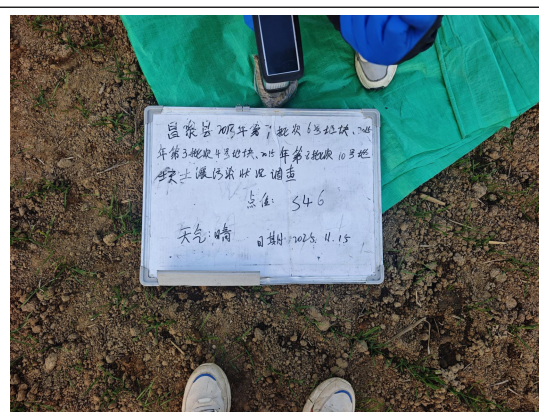 昌黎县2015年第7批次6号地块、2015
年第3批次4号地块、2015年第2批次10号地
块土壤污染状况调查
点位: S46
天气:晴 日期:2025.11.15